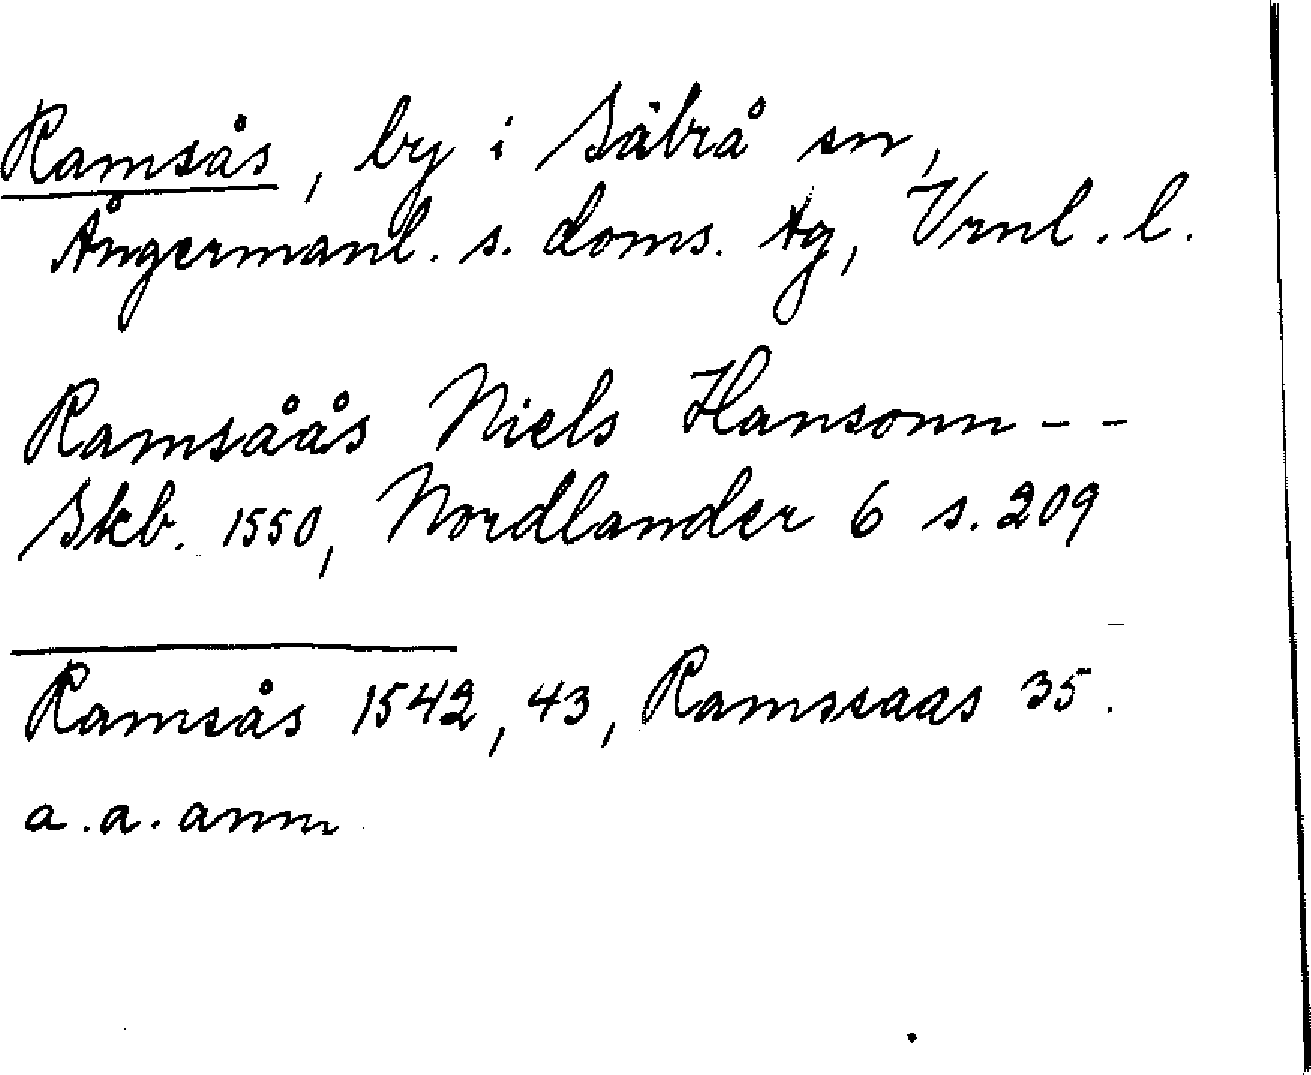 Ramsås, by i Säbrå sn,
Ångermanl. s. doms. tg, Vrnl. l.
Ramsåås Niels Hansonn - -
Skb. 1550, Nordlander 6 s. 209
Ramsås 1542, 43, Ramssaas 35.
a. a. anm